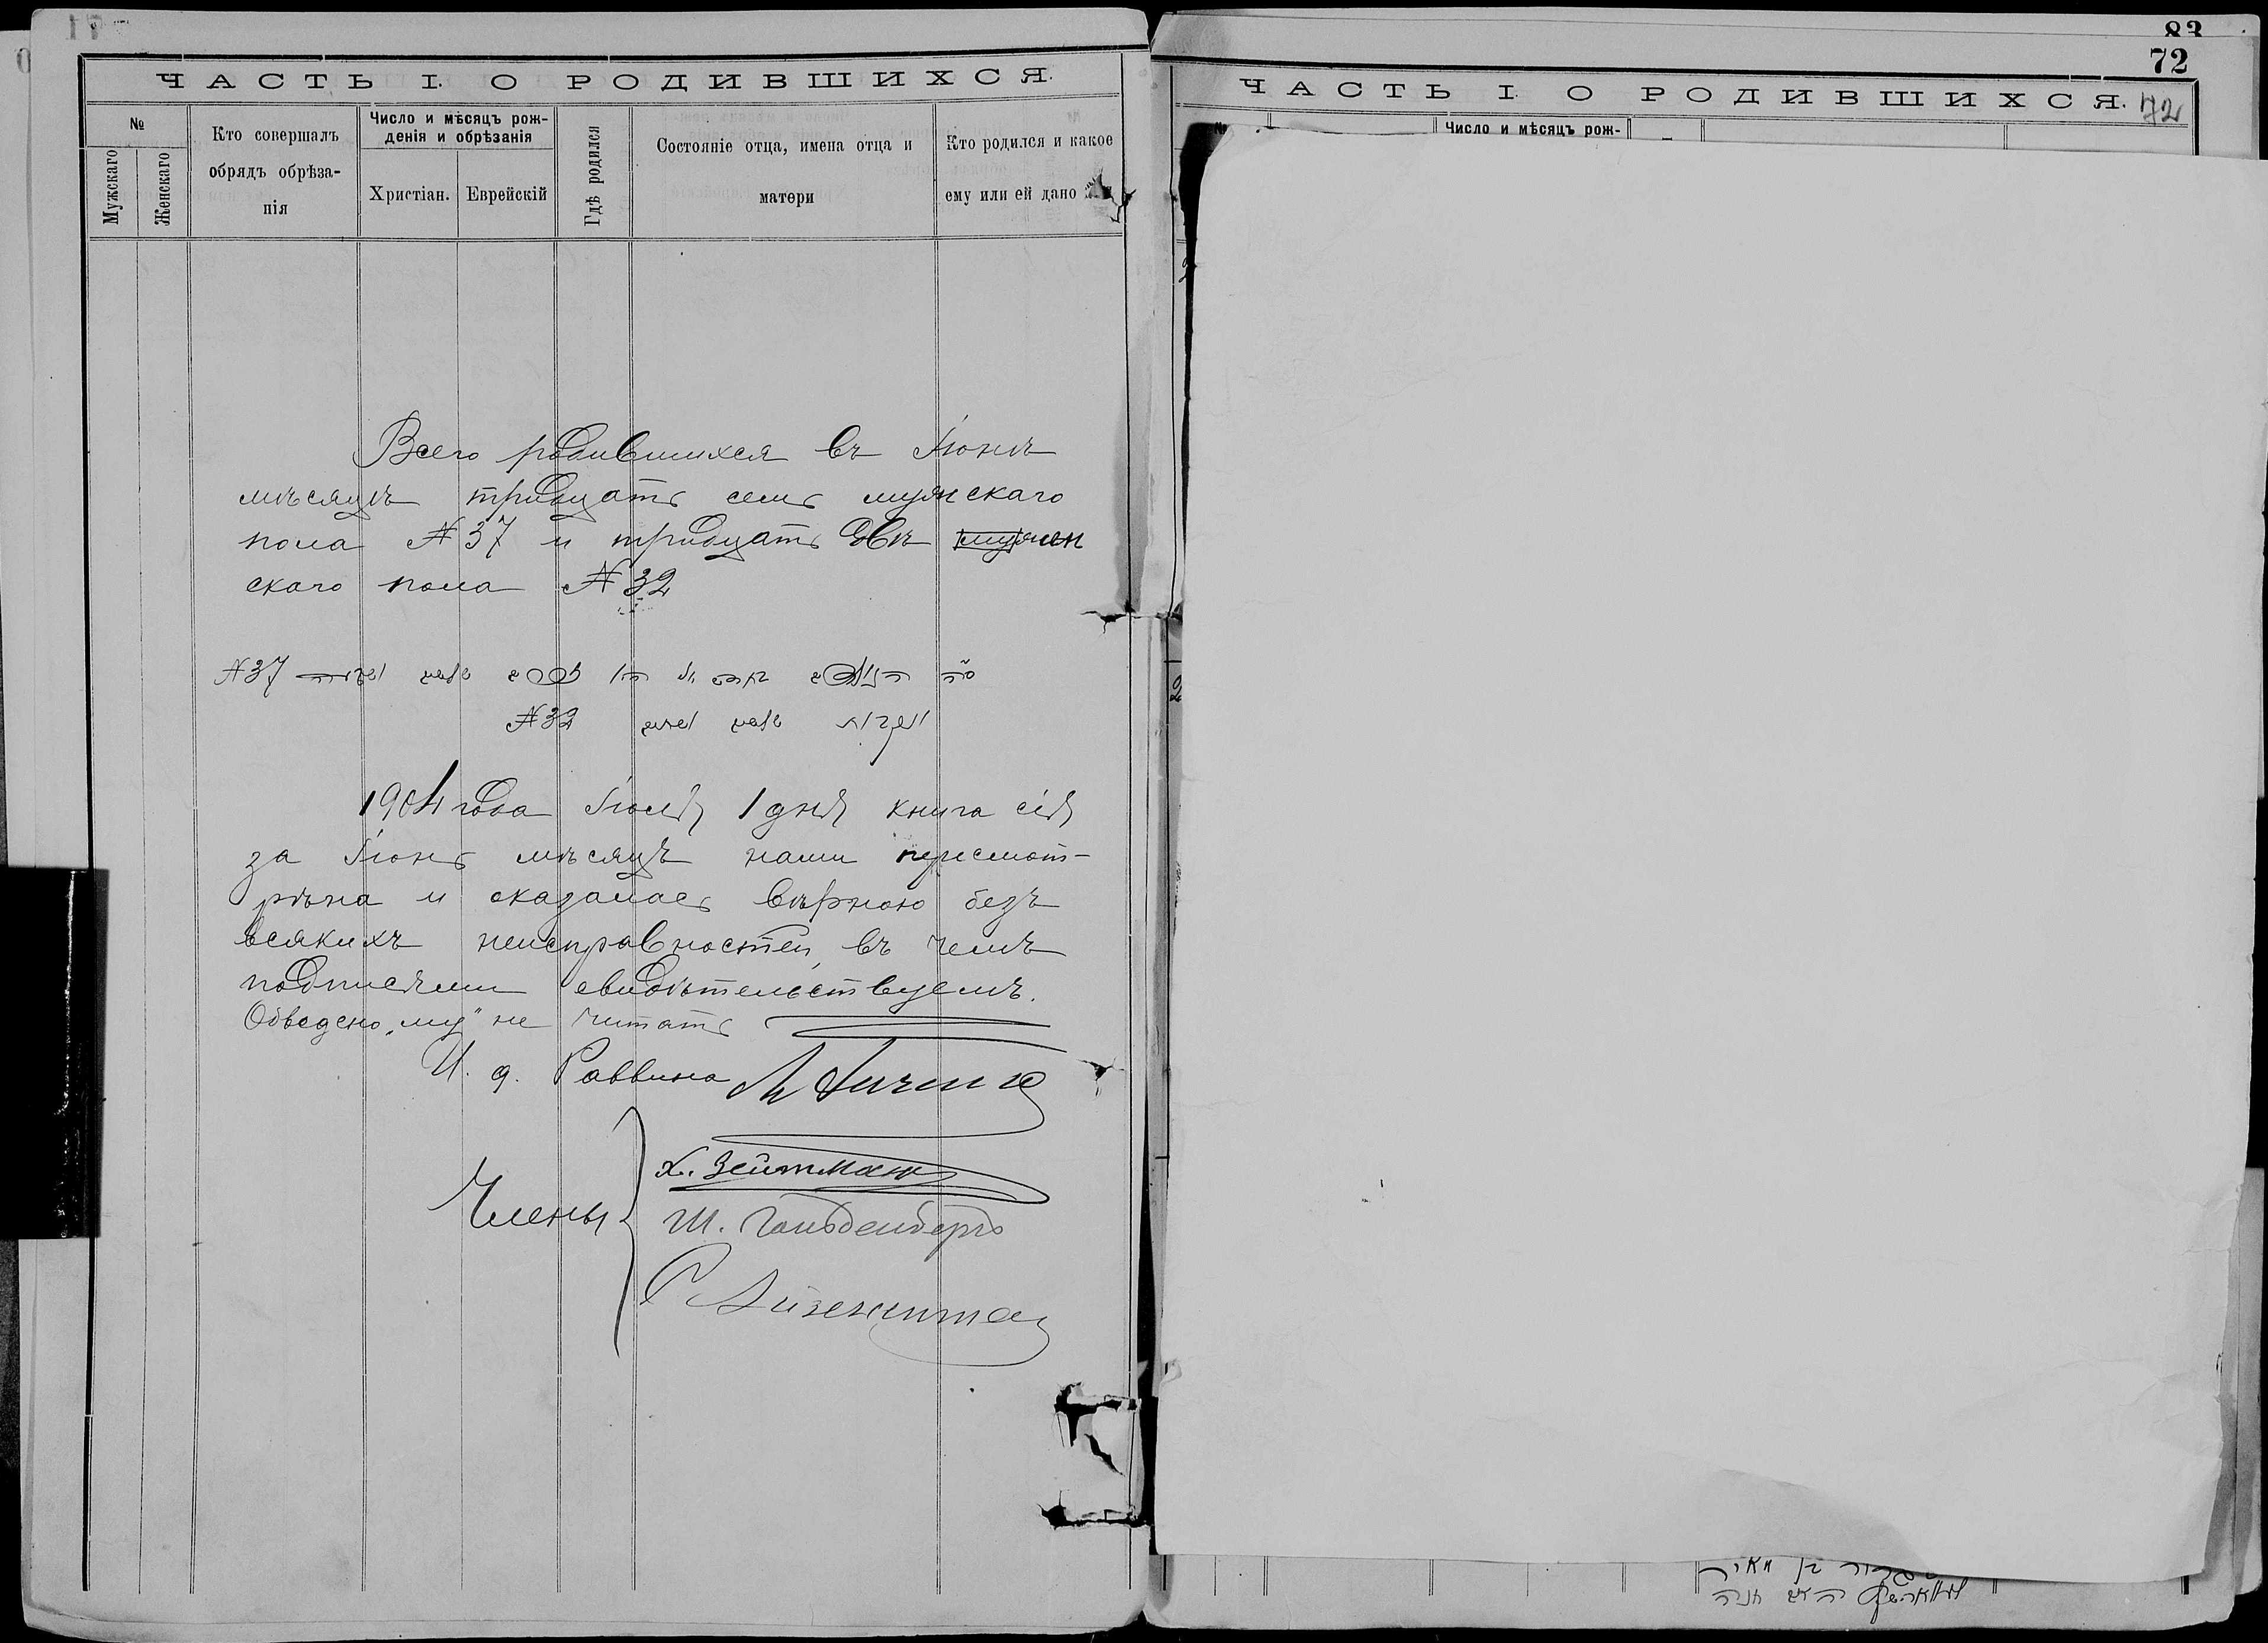 ЧАСТЬ I. О РОДИВШИХСЯ.
№
Мужскаго
Женскаго
Кто совершалъ
обрядъ обрѣза-
нія
Число и мѣсяцъ рож-
денія и обрѣзанія
Христіан.
Еврейскій
Гдѣ родился
Состояніе отца, имена отца и
матери
Кто родился и какое
ему или ей дано
Всего родившихся въ Іюнѣ
мѣсяцѣ тридцать семь мужскаго
пола № 37 и тридцать двѣ му жен
скаго пола № 32
№ 37
№ 32
1904 года Іюля 1 дня книга сія
за Іюнь мѣсяцъ нами пересмот-
рѣна и оказалась вѣрною безъ
всякихъ неисправностей, въ чемъ
подписями свидѣтельствуемъ.
Обведено „му" не читать
И. д. Раввина
Члены
Х. Зейтман
Ш. Гольденбергъ
83
72
ЧАСТЬ I. О РОДИВШИХСЯ.
72
№
Число и мѣсяцъ рож-